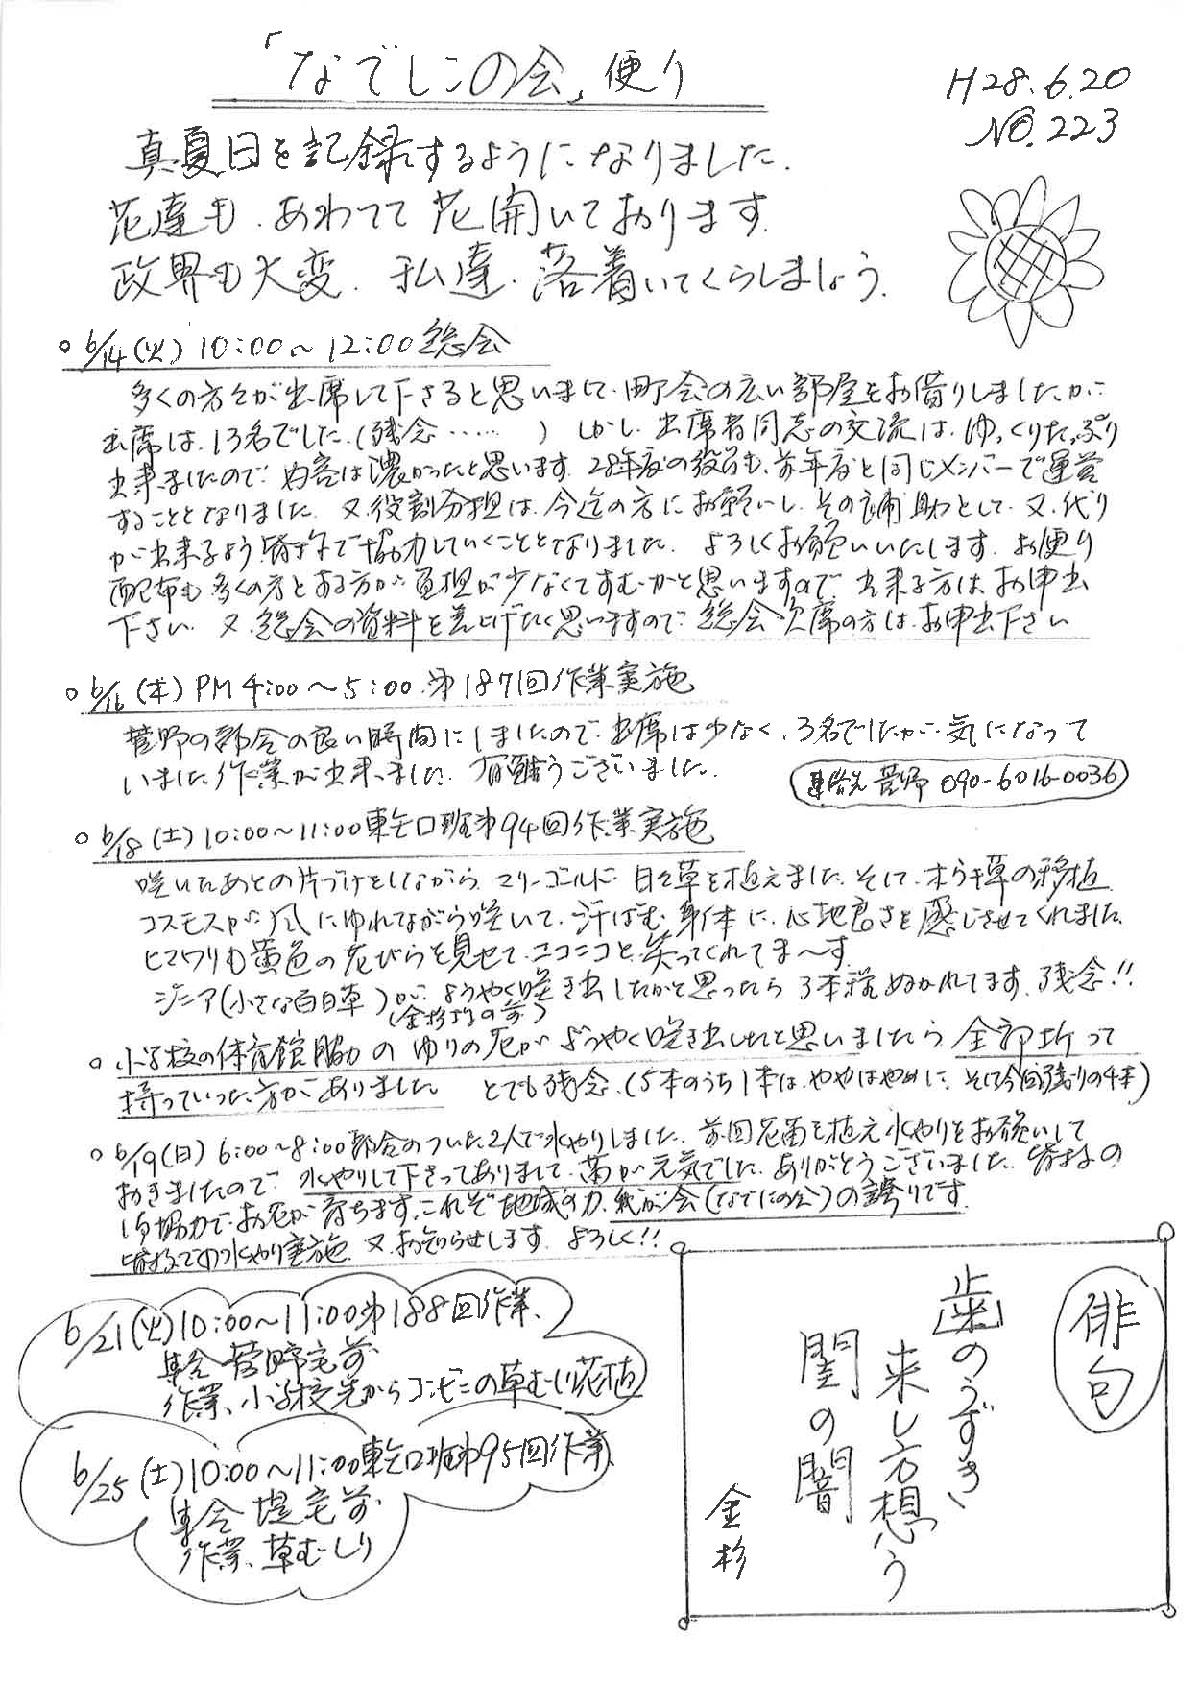 「なでしこの会」便り
H28.6.20
No.223
真夏日を記録するようになりました.
花達も、あわてて花開いております.
政界も大変. 私達、落着いてくらしましょう.
○ 6/14(火) 10:00~12:00 総会
多くの方々が出席して下さると思いまして、町会の広い部屋をお借りしましたが
出席は、13名でした.(残念……) しかし、出席者同志の交流は、ゆっくりたっぷり
出来ましたので、内容は濃かったと思います. 28年度の役員も、前年度と同じメンバーで運営
することとなりました. 又、役割分担は、今迄の方にお願いし、その補助として、又、代り
が出来るよう皆さんで協力していくこととなりました. よろしくお願いいたします. お便り
配布も多くの方とする方が負担が少なくてすむかと思いますので、出来る方は、お申出
下さい. 又、総会の資料を差上げたく思いますので、総会欠席の方は、お申出下さい
○ 6/16(木) PM 4:00~5:00 第187回作業実施
菅野の都合の良い時間にしましたので、出席は少なく、3名でしたが、気になって
いました作業が出来ました. 有難うございました.
連絡先 菅野 090-6016-0036
○ 6/18(土) 10:00~11:00 東口班第94回作業実施
咲いたあとの片づけをしながら、マリーゴールド、日々草を植えました. そして、草の移植
コスモスが風にゆれてながら咲いて、汗ばむ身体に、心地良さを感じさせてくれました.
ヒマワリも黄色の花びらを見せて、ニコニコと、笑ってくれてま〜す.
ジニア(小さな百日草)が、ようやく咲き出したかと思ったら3本程ぬかれてます. 残念!!
(金杉さんの前)
○ 小学校の体育館脇の ゆりの花が ようやく咲き出したと思いましたら 全部折って
持っていった方がありました とても残念.(5本のうち1本は、ややはやめに、そして今回残りの4本)
○ 6/19(日) 6:00~8:00 都合のついた2人で水やりしました. 前回花苗を植え水やりをお願いして
おきましたので、水やりして下さってありまして、苗が元気でした. ありがとうございました. 皆さまの
御協力で、お花が育ちます. これぞ地域の力、我が会(なでしこの会)の誇りです.
皆さまでの水やり実施 又、お知らせします. よろしく!!
6/21(火) 10:00~11:00 第188回作業、
集合 菅野宅前
作業、小学校先からコンビニの草むしり花植
6/25(土) 10:00~11:00 東口班第95回作業、
集合 堤宅前
作業、草むしり
俳句
歯のうずき
来し方想う
闇の闇
金杉